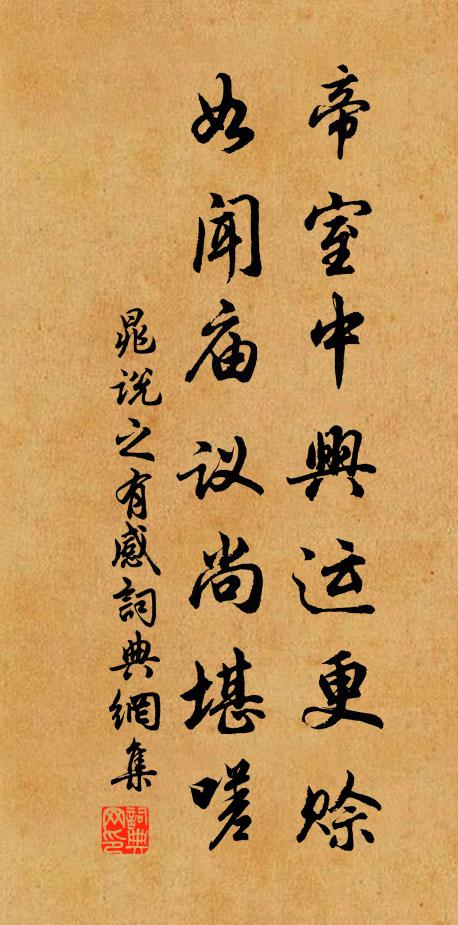 帝室中興运更赊
如闻庙议尚堪嗟
晁说之有感詞典網集
詞典网印